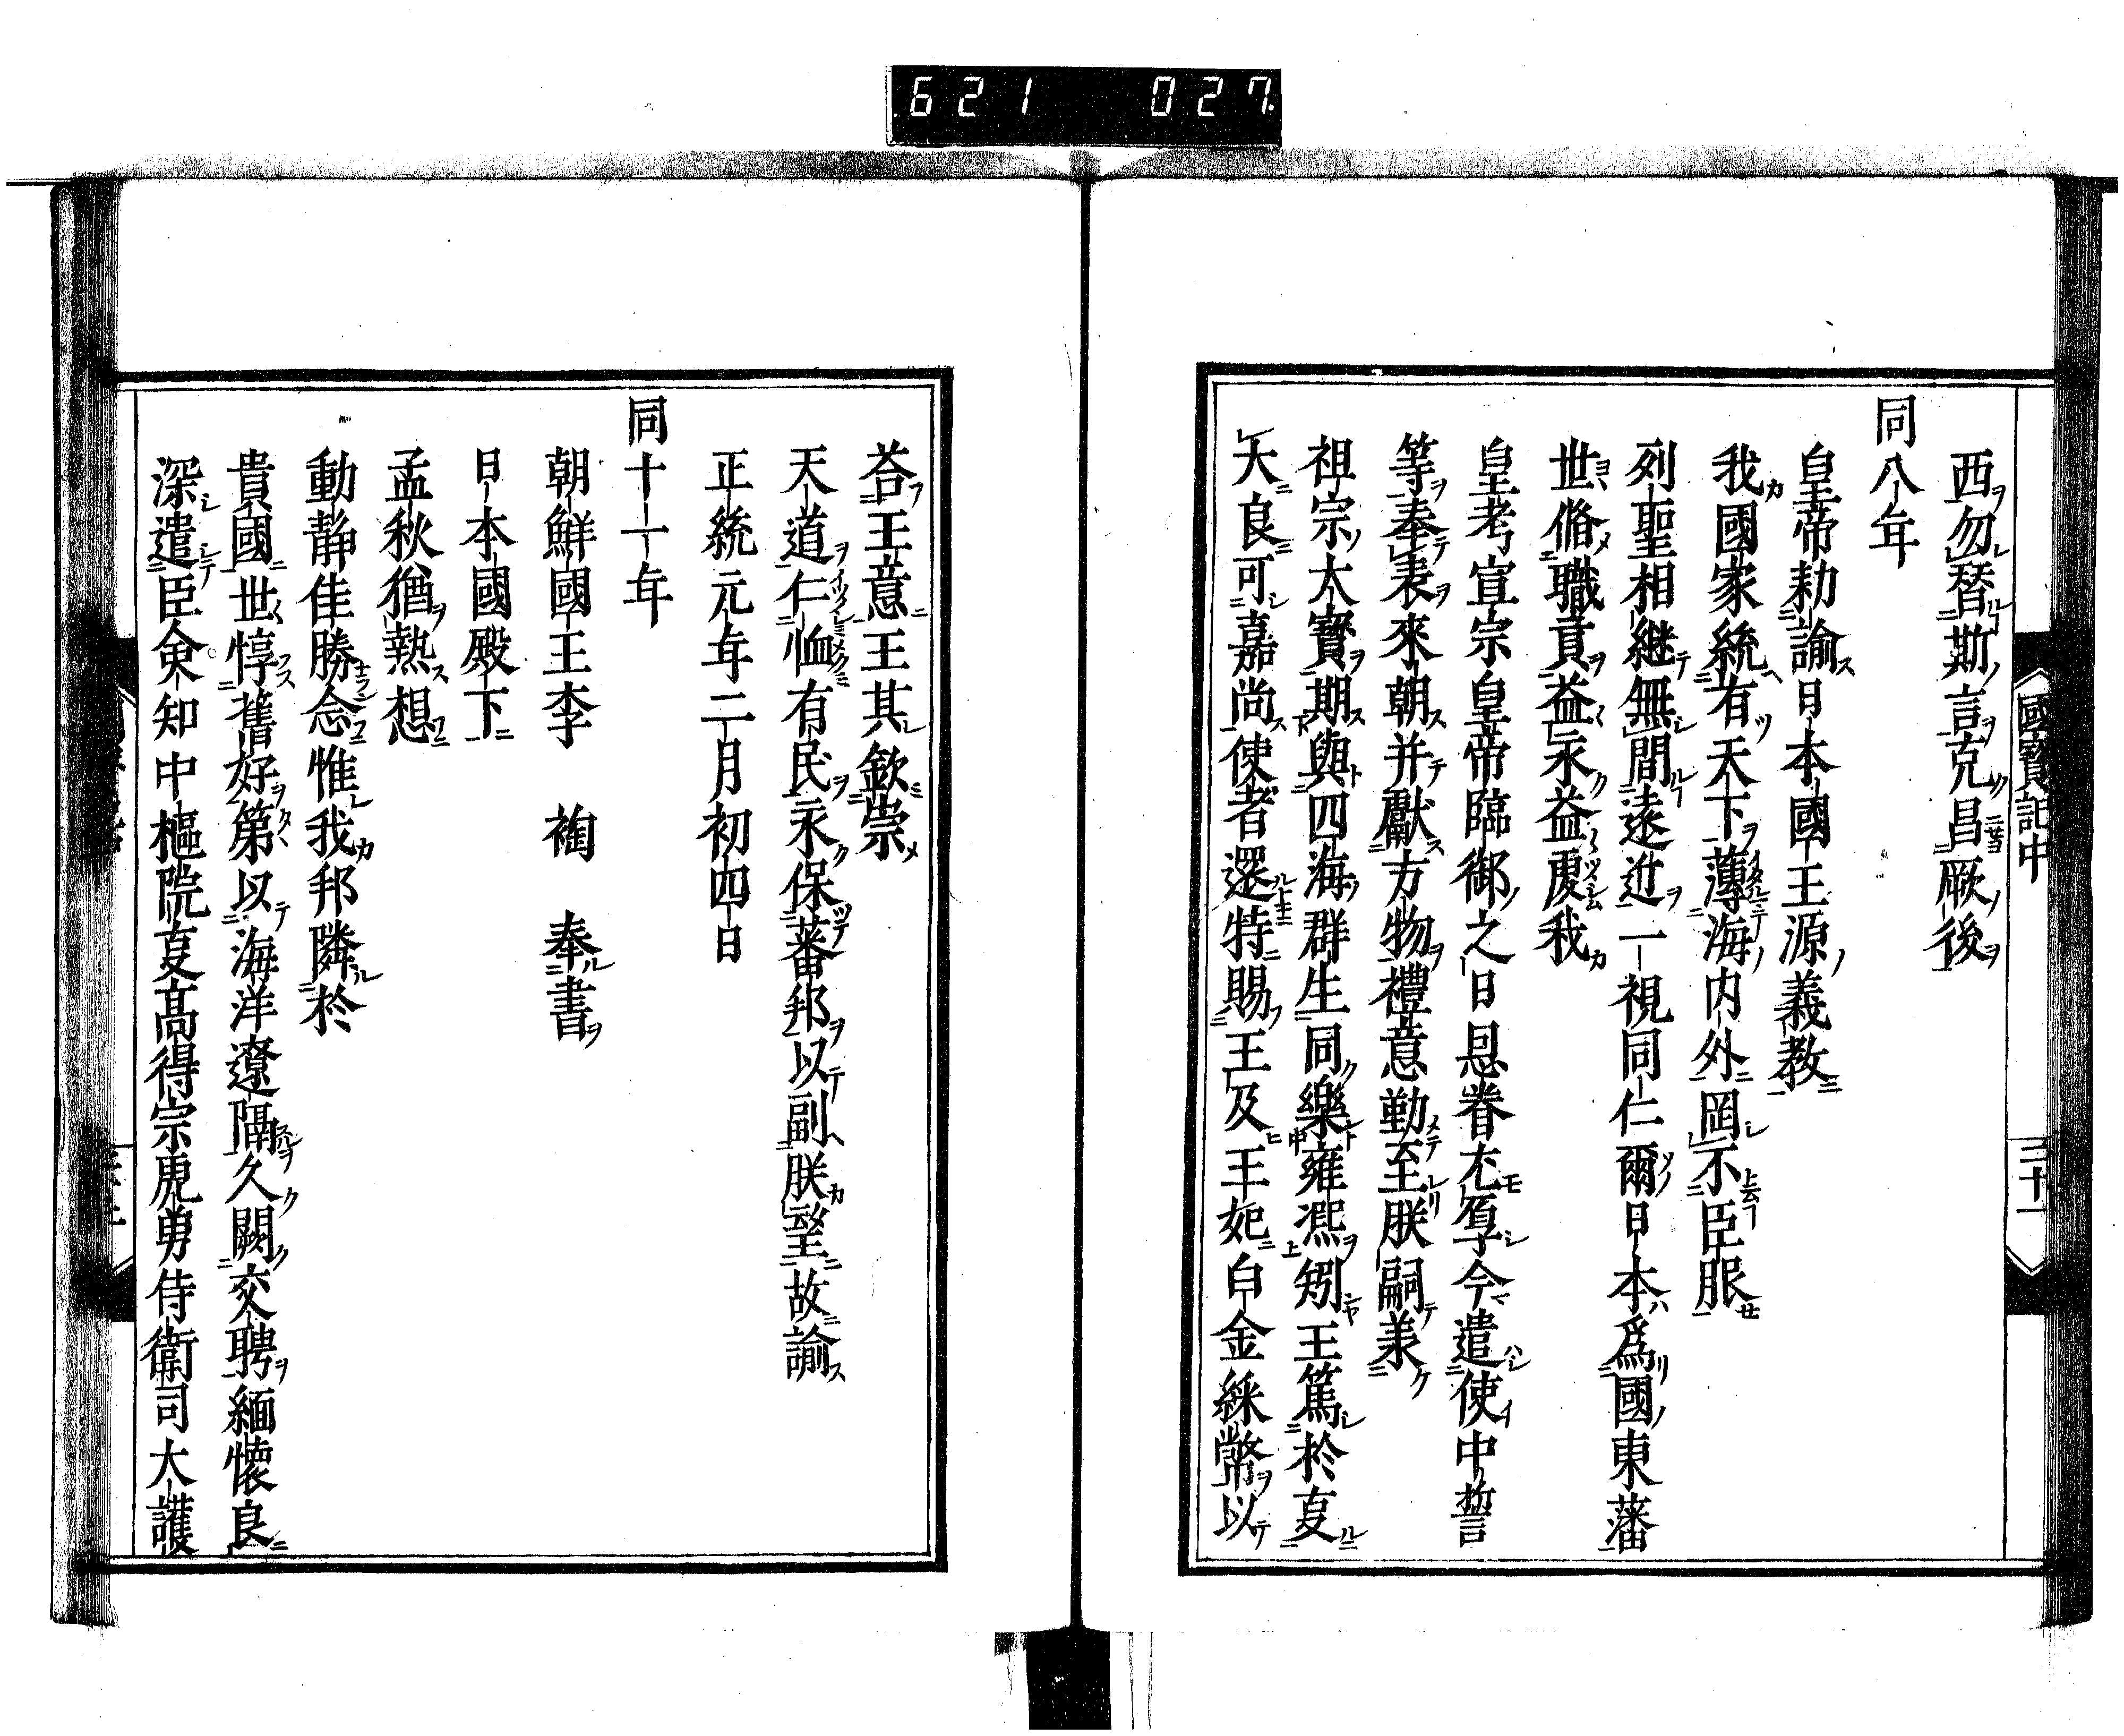 621 027
國寶記中
三十一
西勿替斯言克昌厥後
同八年
皇帝勑諭日本國王源義教
我國家統有天下薄海内外罔不臣服
列聖相継無間遠近一視同仁爾日本爲國東藩
世脩職貢益永益虔我
皇考宣宗皇帝臨御之日恩眷尤厚今遣使中誓
等奉表來朝并獻方物禮意勤至朕嗣羕
祖宗大寳期與四海群生同樂雍凞矧王篤於㕝
大良可嘉尚使者還特賜王及王妃白金綵幣以
荅王意王其欽崇
天道仁恤有民永保蕃邦以副朕望故諭
正統元年二月初四日
同十一年
朝鮮國王李 裪 奉書
日本國殿下
孟秋猶熱想
動静佳勝念惟我邦隣於
貴國世惇舊好第以海洋遼隔久闕交聘緬懷良
深遣臣僉知中樞院㕝髙得宗虎勇侍衛司大護